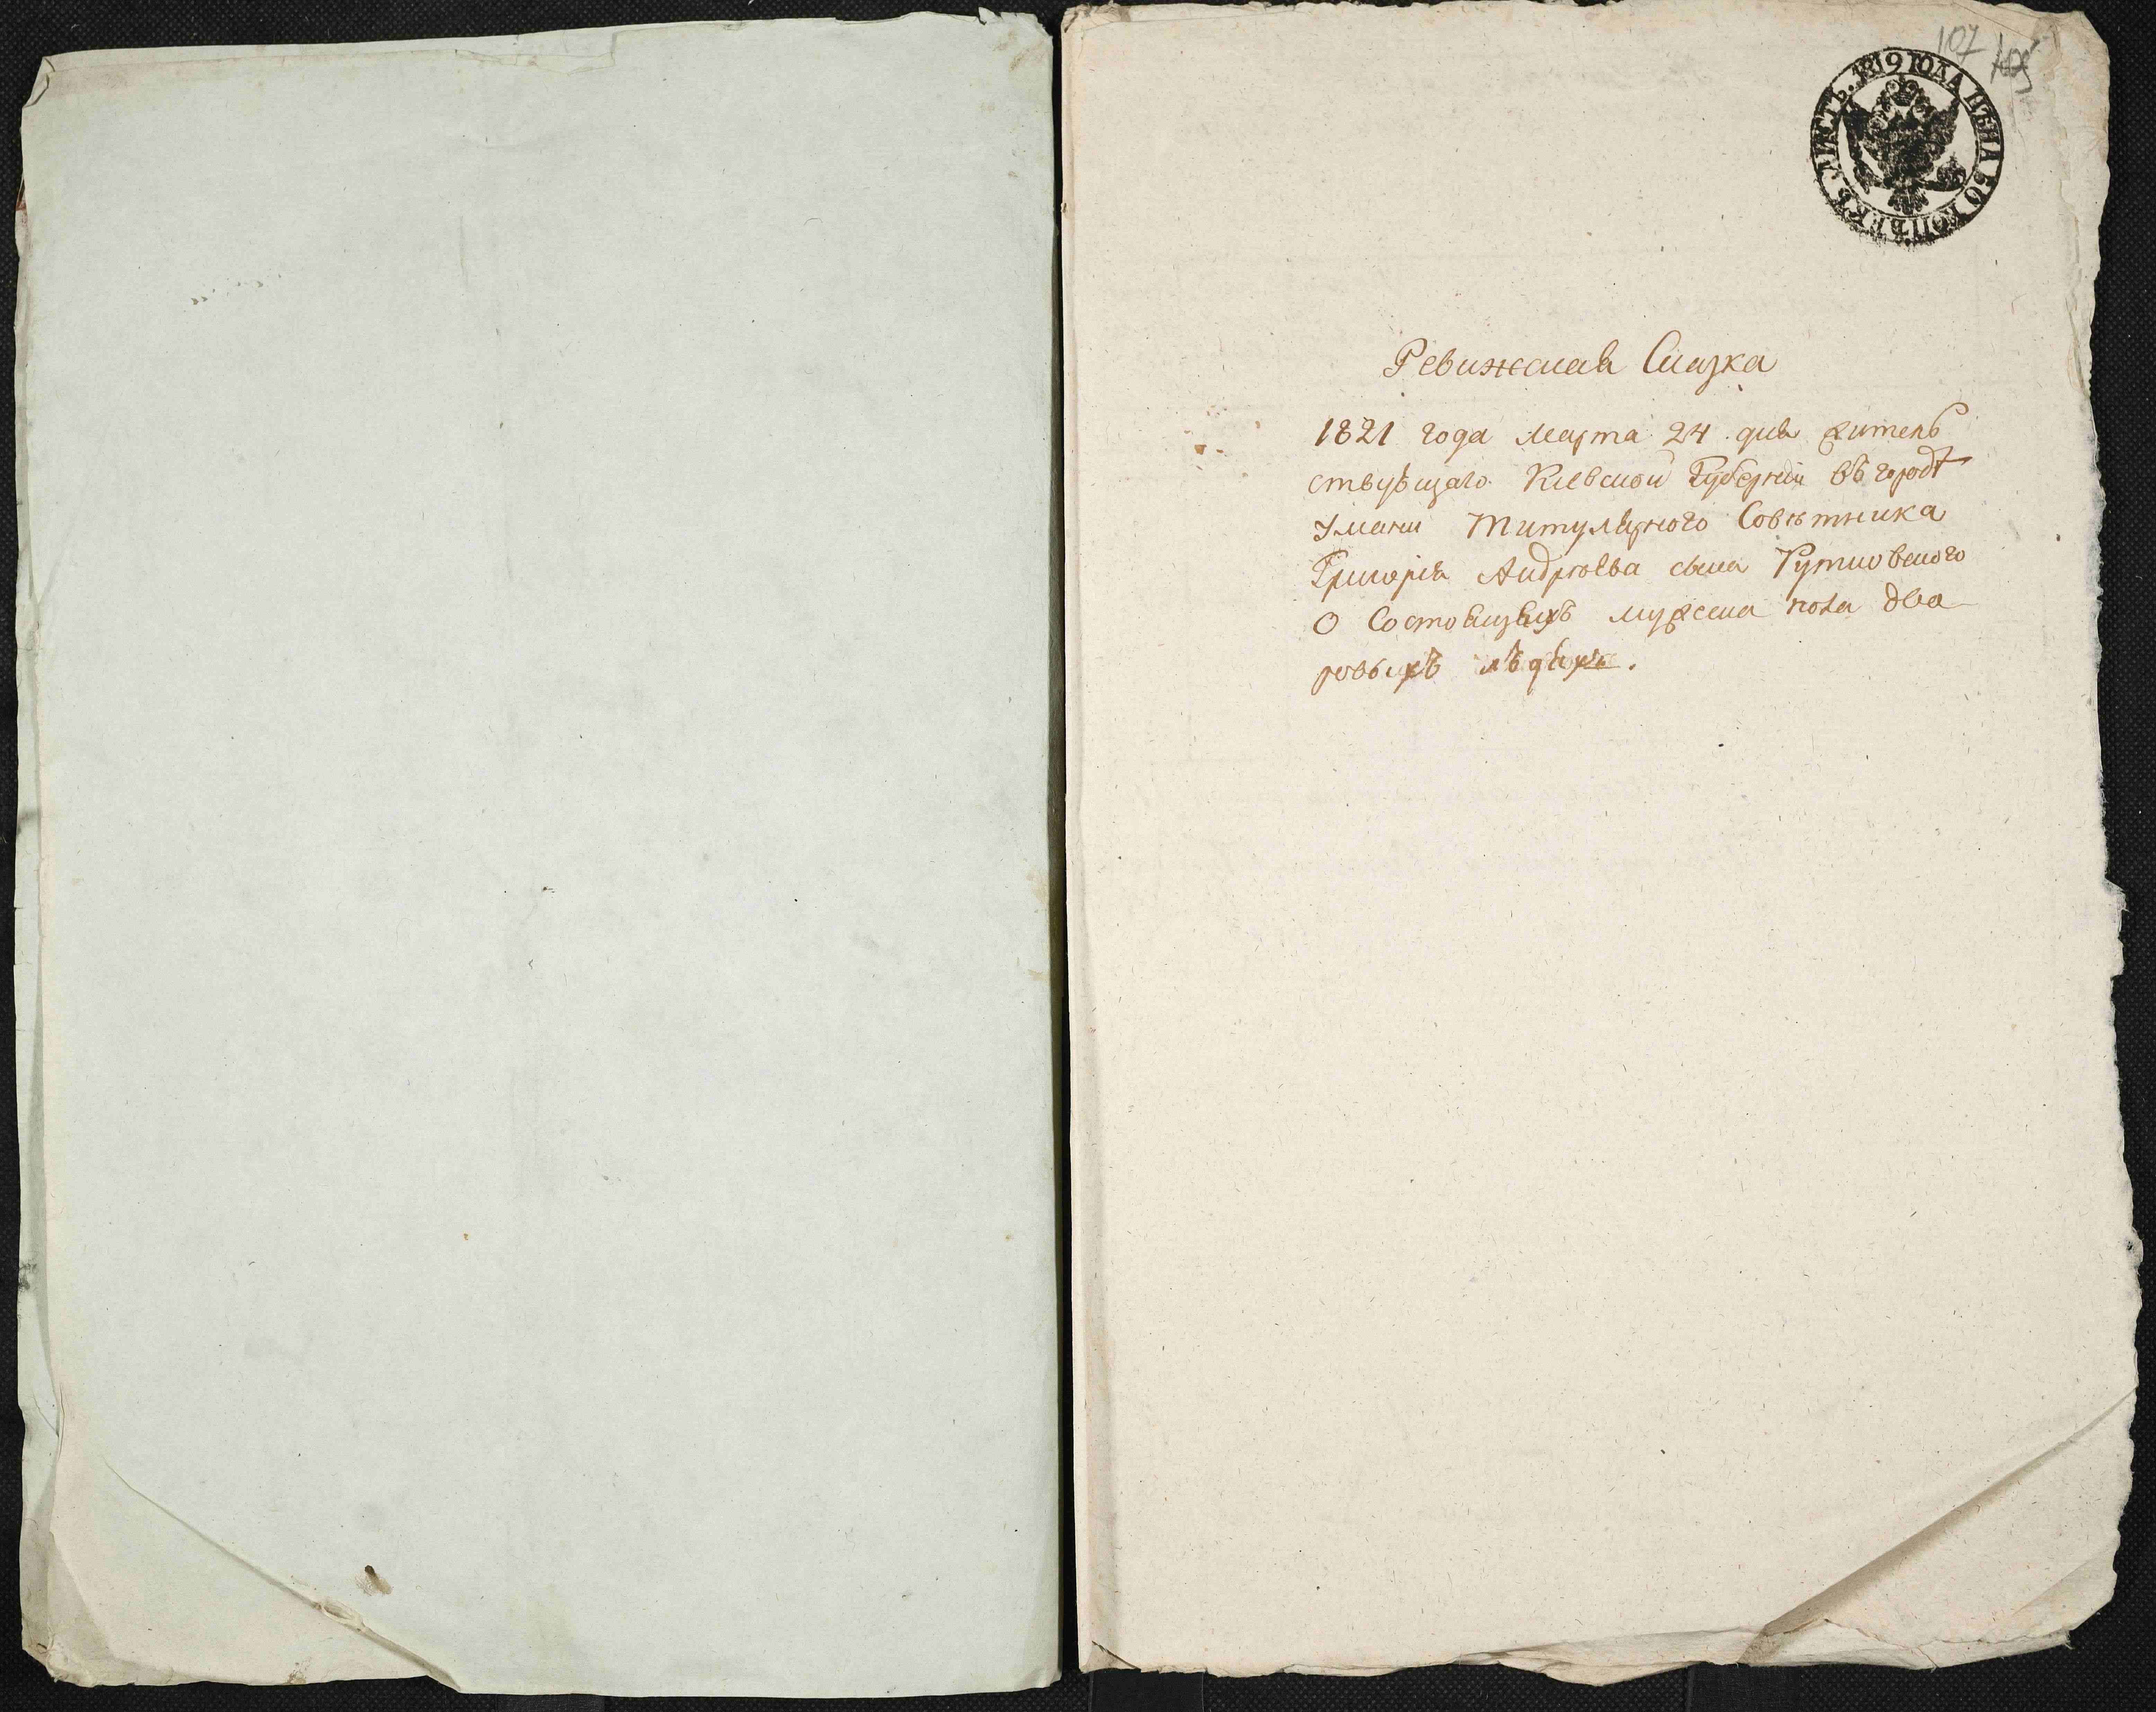 107
ЛИСТЪ. 1819 ГОДА ЦѢНА 50 КОПѢЕКЪ
Ревижская Сказка
1821 года Марта 24 дня житель
ствующаго Киевской Губерніи въ городѣ
Умани Титулярного Совѣтника
Григорія Андрѣева сына Рутковского
О Состоящихъ мужеска пола два
ровыхъ людяхъ.